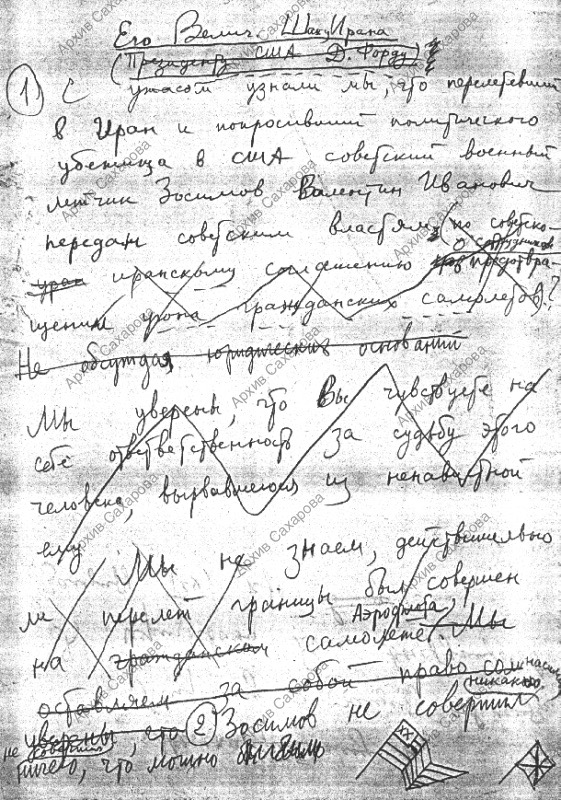 Его Велич. Шаху Ирана
(Президенту США Д. Форду)
1) С
ужасом узнали мы, что перелетевший
в Иран и попросивший политического
убежища в США советский военный
летчик Зосимов Валентин Иванович
передан советским властям (по советско-
о сотрудников
иранскому соглашению предотвра-
щении угона гражданских самолетов)?
Не обсуждая юридических оснований
Мы уверены, что Вы чувствуете на
себе ответственность за судьбу этого
человека, вырвавшегося из ненавистной
ему
Мы не знаем, действительно
ли перелет границы был совершен
на гражданском самолете. Мы
Аэрофлота,
оставляем за собой право
никакого
уверены, что 2 Зосимов не совершил
не совершил
ничего, что можно
XX
Архив Сахарова